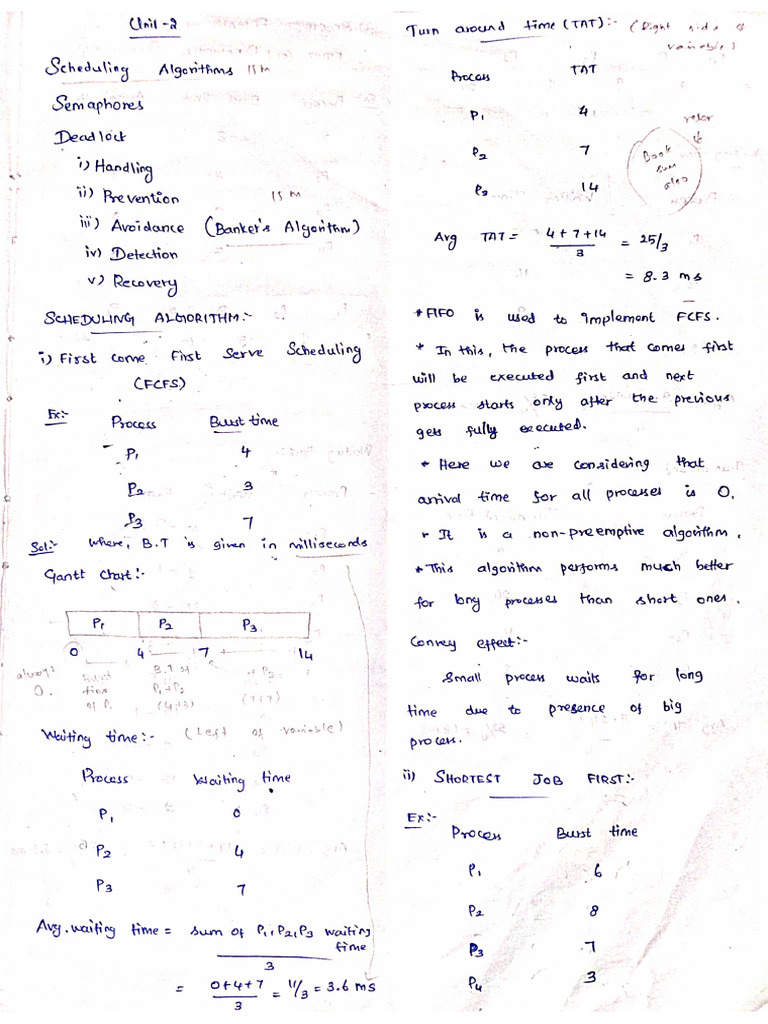 Unit-2
Scheduling Algorithms 15M
Semaphores
Deadlock
i) Handling
ii) Prevention 15M
iii) Avoidance (Banker's Algorithm)
iv) Detection
v) Recovery
SCHEDULING ALGORITHM:-
i) First come First Serve Scheduling
(FCFS)
Ex:- Process Burst time
P1 4
P2 3
P3 7
Sol:- where, B.T is given in milliseconds
Gantt chart:-
P1 P2 P3
0 4 7 14
always 0.
burst time of P1
B.T of P1+P2 (4+3)
+P3 (7+7)
Waiting time:- (Left of variable)
Process Waiting time
P1 0
P2 4
P3 7
Avg. waiting time = sum of P1, P2, P3 waiting time
3
= 0+4+7 / 3 = 11/3 = 3.6 ms
Turn around time (TAT):- (Right side of
variable)
Process TAT
P1 4
P2 7
P3 14
refer
Book
sum
also
Avg TAT = 4+7+14 / 3 = 25/3
= 8.3 ms
* FIFO is used to implement FCFS.
* In this, the process that comes first
will be executed first and next
process starts only after the previous
gets fully executed.
* Here we are considering that
arrival time for all processes is 0.
* It is a non-preemptive algorithm.
* This algorithm performs much better
for long processes than short ones.
Convey effect:-
Small process waits for long
time due to presence of big
process.
ii) SHORTEST JOB FIRST:-
Ex:-
Process Burst time
P1 6
P2 8
P3 7
P4 3